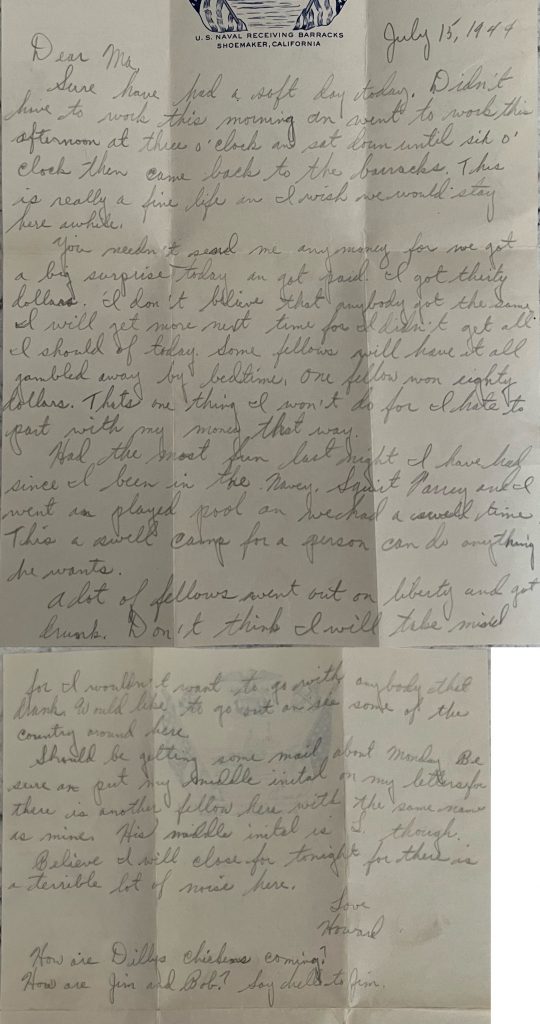 U.S. NAVAL RECEIVING BARRACKS
SHOEMAKER, CALIFORNIA
July 15, 1944
Dear Ma,
Sure have had a soft day today. Didn't
have to work this morning an went to work this
afternoon at three o'clock an set down until six o'
clock then came back to the barracks. This
is really a fine life an I wish we would stay
here awhile.
You needn't send me any money for we got
a big surprise today an got paid. I got thirty
dollars. I don't believe that anybody got the same.
I will get more next time for I didn't get all
I should of today. Some fellows will have it all
gambled away by bedtime. One fellow won eighty
dollars. Thats one thing I won't do for I hate to
part with my money that way.
Had the most fun last night I have had
since I been in the Navey. Squirt and I
went an played pool an we had a swell time
This a swell camp for a person can do anything
he wants.
A lot of fellows went out on liberty and got
drunk. Don't think I will take mine
for I wouldn't want to go with anybody that
drank. Would like to go out an see some of the
country around here.
Should be getting some mail about Monday. Be
sure an put my middle inital on my letters for
there is another fellow here with the same name
as mine. His middle inital is L. though.
Believe I will close for tonight for there is
a terrible lot of noise here.
Love
Howard
How are Dillys chickens coming?
How are Jim and Bob? Say hello to Jim.